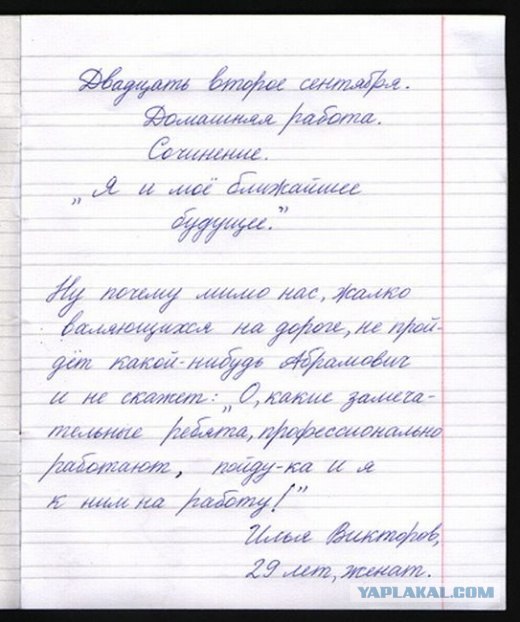 Двадцать второе сентября.
Домашняя работа.
Сочинение.
„Я и моё ближайшее
будущее.”
Ну почему мимо нас, жалко
валяющихся на дороге, не прой-
дёт какой-нибудь Абрамович
и не скажет: „О, какие замеча-
тельные ребята, профессионально
работают, пойду-ка и я
к ним на работу!”
Илья Викторов,
29 лет, женат.
YAPLAKAL.COM